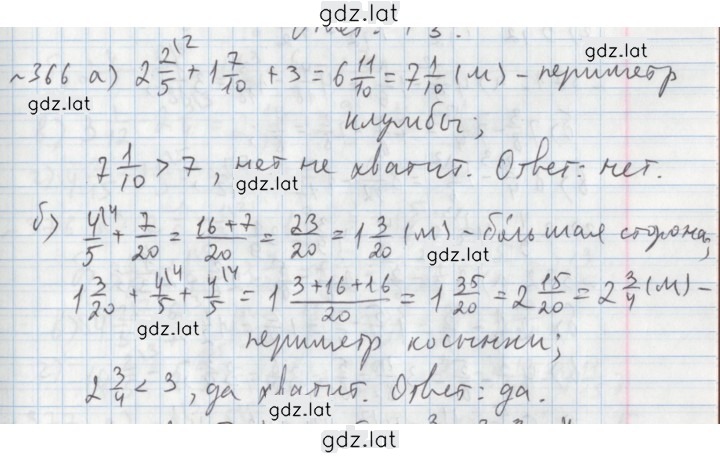 gdz.lat
№366 а) 2 2/5 \2 + 1 7/10 + 3 = 6 11/10 = 7 1/10 (м) – периметр
gdz.lat
клумбы;
7 1/10 > 7, нет не хватит. Ответ: нет.
gdz.lat
б) 4/5 \4 + 7/20 = (16+7)/20 = 23/20 = 1 3/20 (м) – бо́льшая сторона;
gdz.lat
1 3/20 + 4/5 \4 + 4/5 \4 = 1 (3+16+16)/20 = 1 35/20 = 2 15/20 = 2 3/4 (м) –
gdz.lat
периметр косынки;
2 3/4 < 3, да хватит. Ответ: да.
gdz.lat
gdz.lat